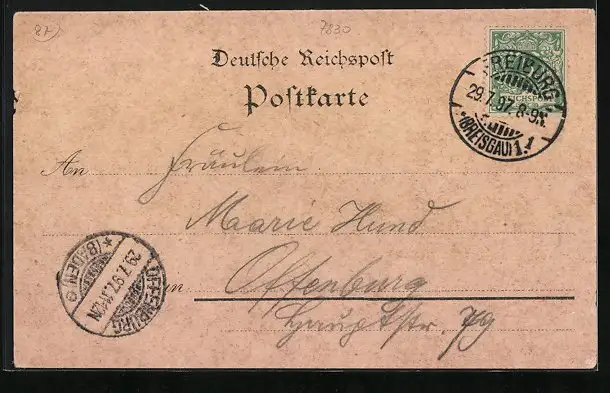 87
7830
Deutsche Reichspost
Postkarte
REICHSPOST
FREIBURG
29.7.97.8-9N.
*(BREISGAU)1.1
An Fräulein
Marie Hund
in Offenburg
Hauptstr. 79
OFFENBURG
29.7.97.
*(BADEN)